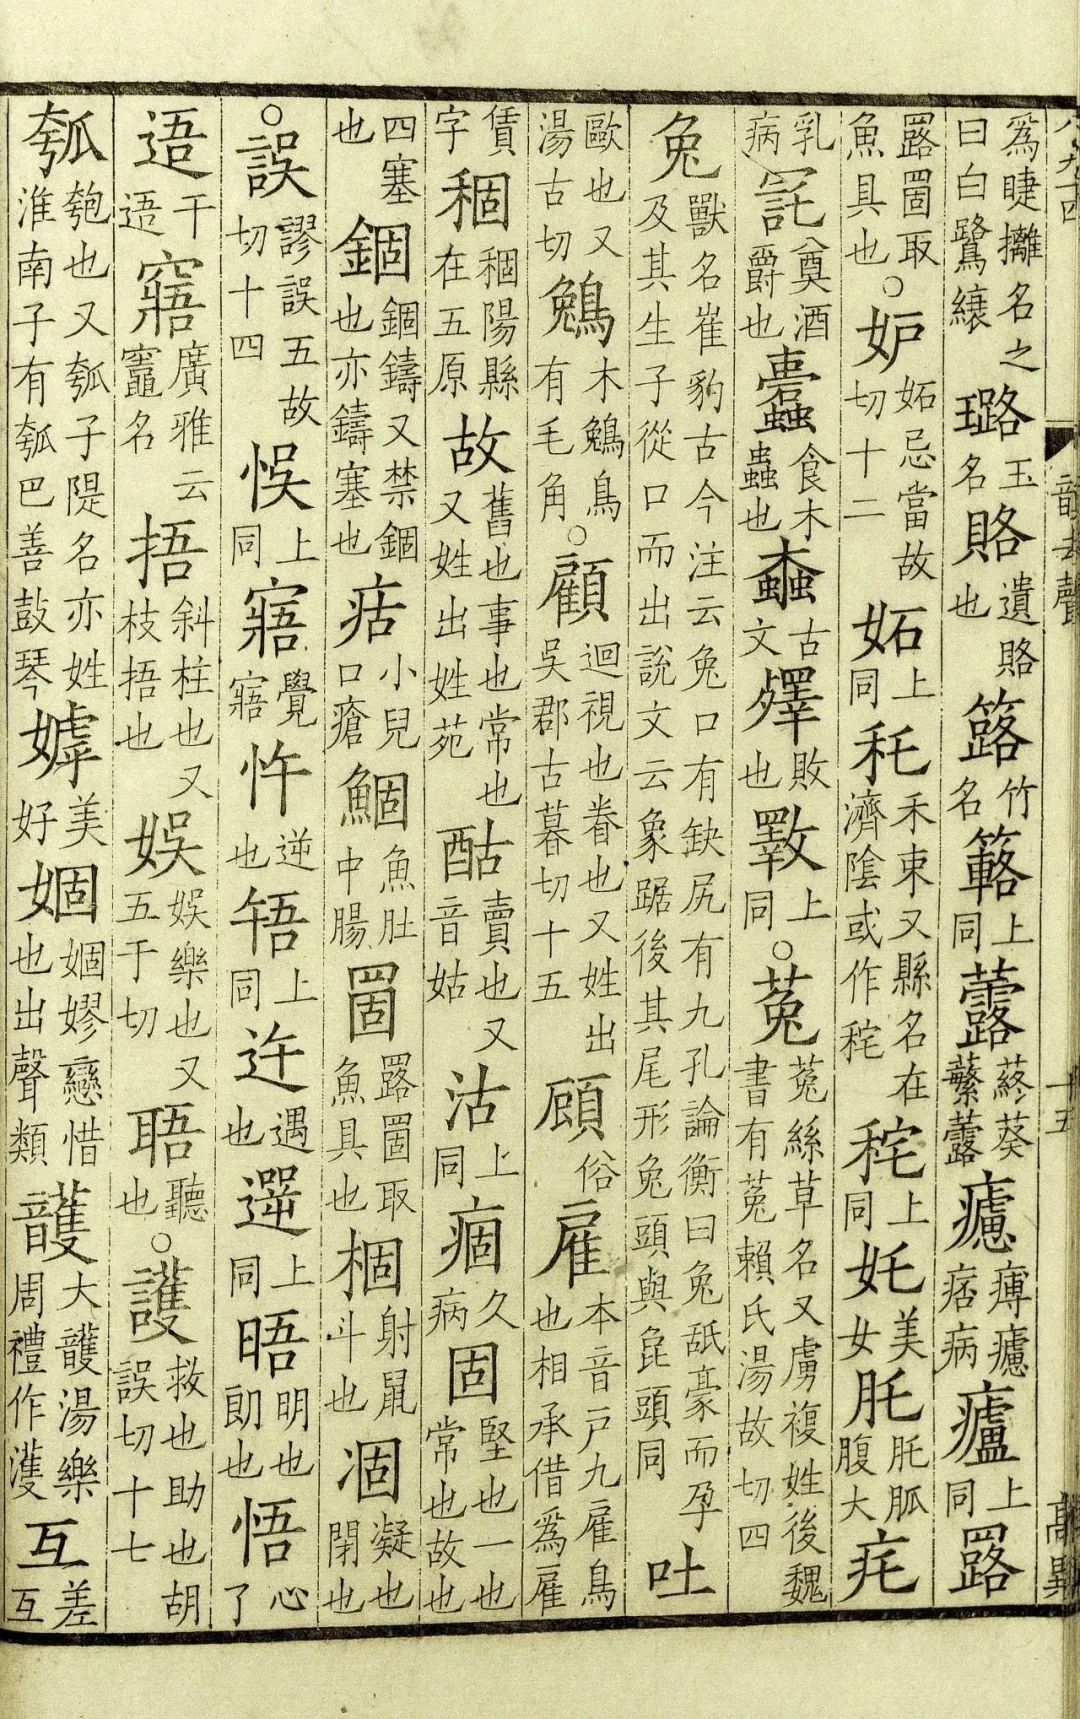 爲睫攡名之曰白鷺縗璐玉名賂遺賂也簬竹名簵上同蕗蔠葵蘩蕗𤺄瘏𤺄痞病㿖上同罬
罬罟取魚具也○妒妬忌當故切十二妬上同秅禾束又縣名在濟陰或作秺秺上同奼美女𦙲𦙲胍腹大㡯
乳病䆛奠酒爵也蠹食木蟲也螙古文殬敗也斁上同○菟菟絲草名又虜複姓後魏書有菟賴氏湯故切四
兔獸名崔豹古今注云兔口有缺尻有九孔論衡曰兔舐毫而孕及其生子從口而出說文云象踞後其尾形兔頭與㲋頭同吐
歐也又湯古切鵵木鵵鳥有毛角○顧迴視也眷也又姓出吳郡古暮切十五頋俗雇本音戶九雇鳥也相承借爲雇
賃字稒稒陽縣在五原故舊也事也常也又姓出姓苑酤賣也又音姑沽上同痼久病固堅也一也常也故也
四塞也錮錮鑄又禁錮也亦鑄塞也㾇小兒口瘡鯝魚肚中腸䍛罬䍛取魚具也棝射鼠斗也凅凝也閉也
○誤謬誤五故切十四悞上同寤覺寤忤逆也啎上同迕遇也遻上同晤明也朗也悟心了
逜干逜㝛廣雅云竈名捂斜柱也又枝捂也娛娛樂也又五于切䎸聽也○護救也助也胡誤切十七
瓠匏也又瓠子隄名亦姓淮南子有瓠巴善鼓琴嫭美好婟婟嫪戀惜也出聲類頀大頀湯樂周禮作濩互差互